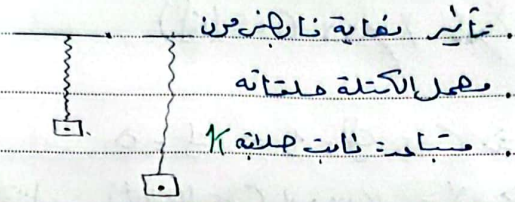 . تأثير نهاية نابض مرن
. مهمل الكتلة حلقاته
. متباعدة ثابت صلابته K